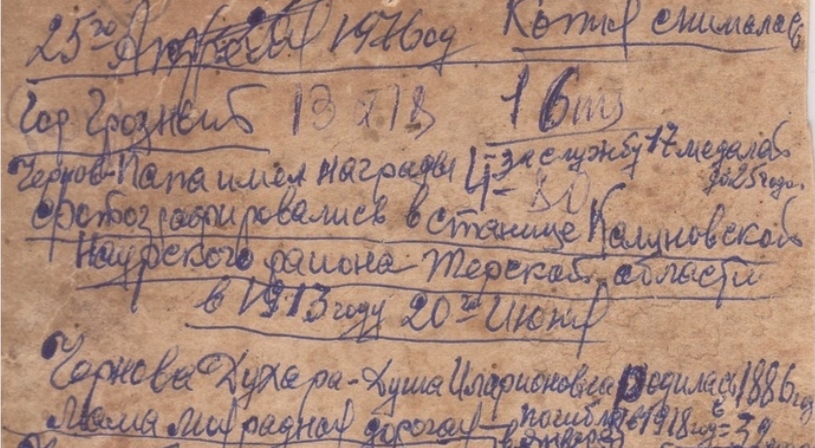 25го Апреля 1976од Котя снималась
Гор. Грозный 13 16
Чернов-Папа имел награды 4- за службу 17 медалей
до 25 года.
Фотографировались в станице Калиновской
Наурского района Терской области
в 1913 году 20го Июня
Чернова Духара-Душа Иларионовна родилась 1886 год
Мама моя родная дорогая погибла в 1918 год